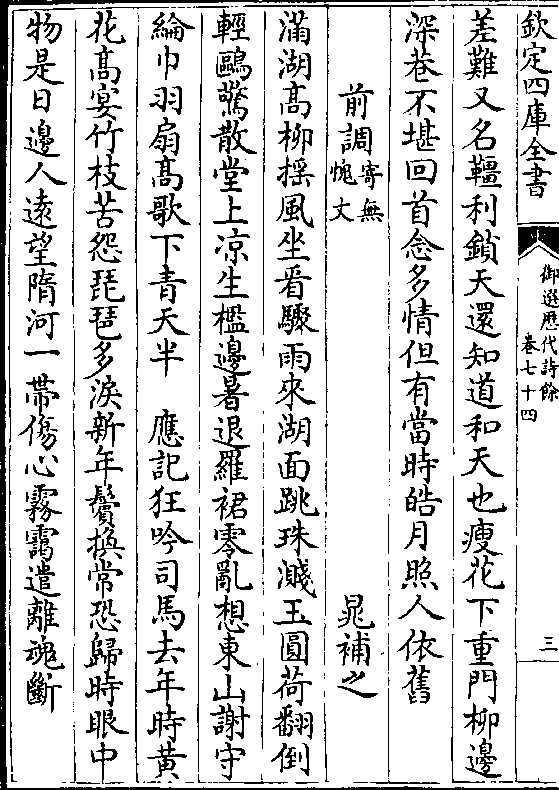 欽定四庫全書
御選歷代詩餘
卷七十四
三
差難又名韁利鎖天還知道和天也瘦花下重門柳邊
深巷不堪回首念多情但有當時皓月照人依舊
前調寄無愧丈
晁補之
滿湖高柳揺風坐看驟雨來湖面跳珠濺玉圓荷翻倒
輕鷗驚散堂上凉生檻邊暑退羅裙零亂想東山謝守
綸巾羽扇高歌下青天半　應記狂吟司馬去年時黄
花髙宴竹枝苦怨琵琶多淚新年鬢換常恐歸時眼中
物是日邊人逺望隋河一帶傷心霧靄遣離魂斷